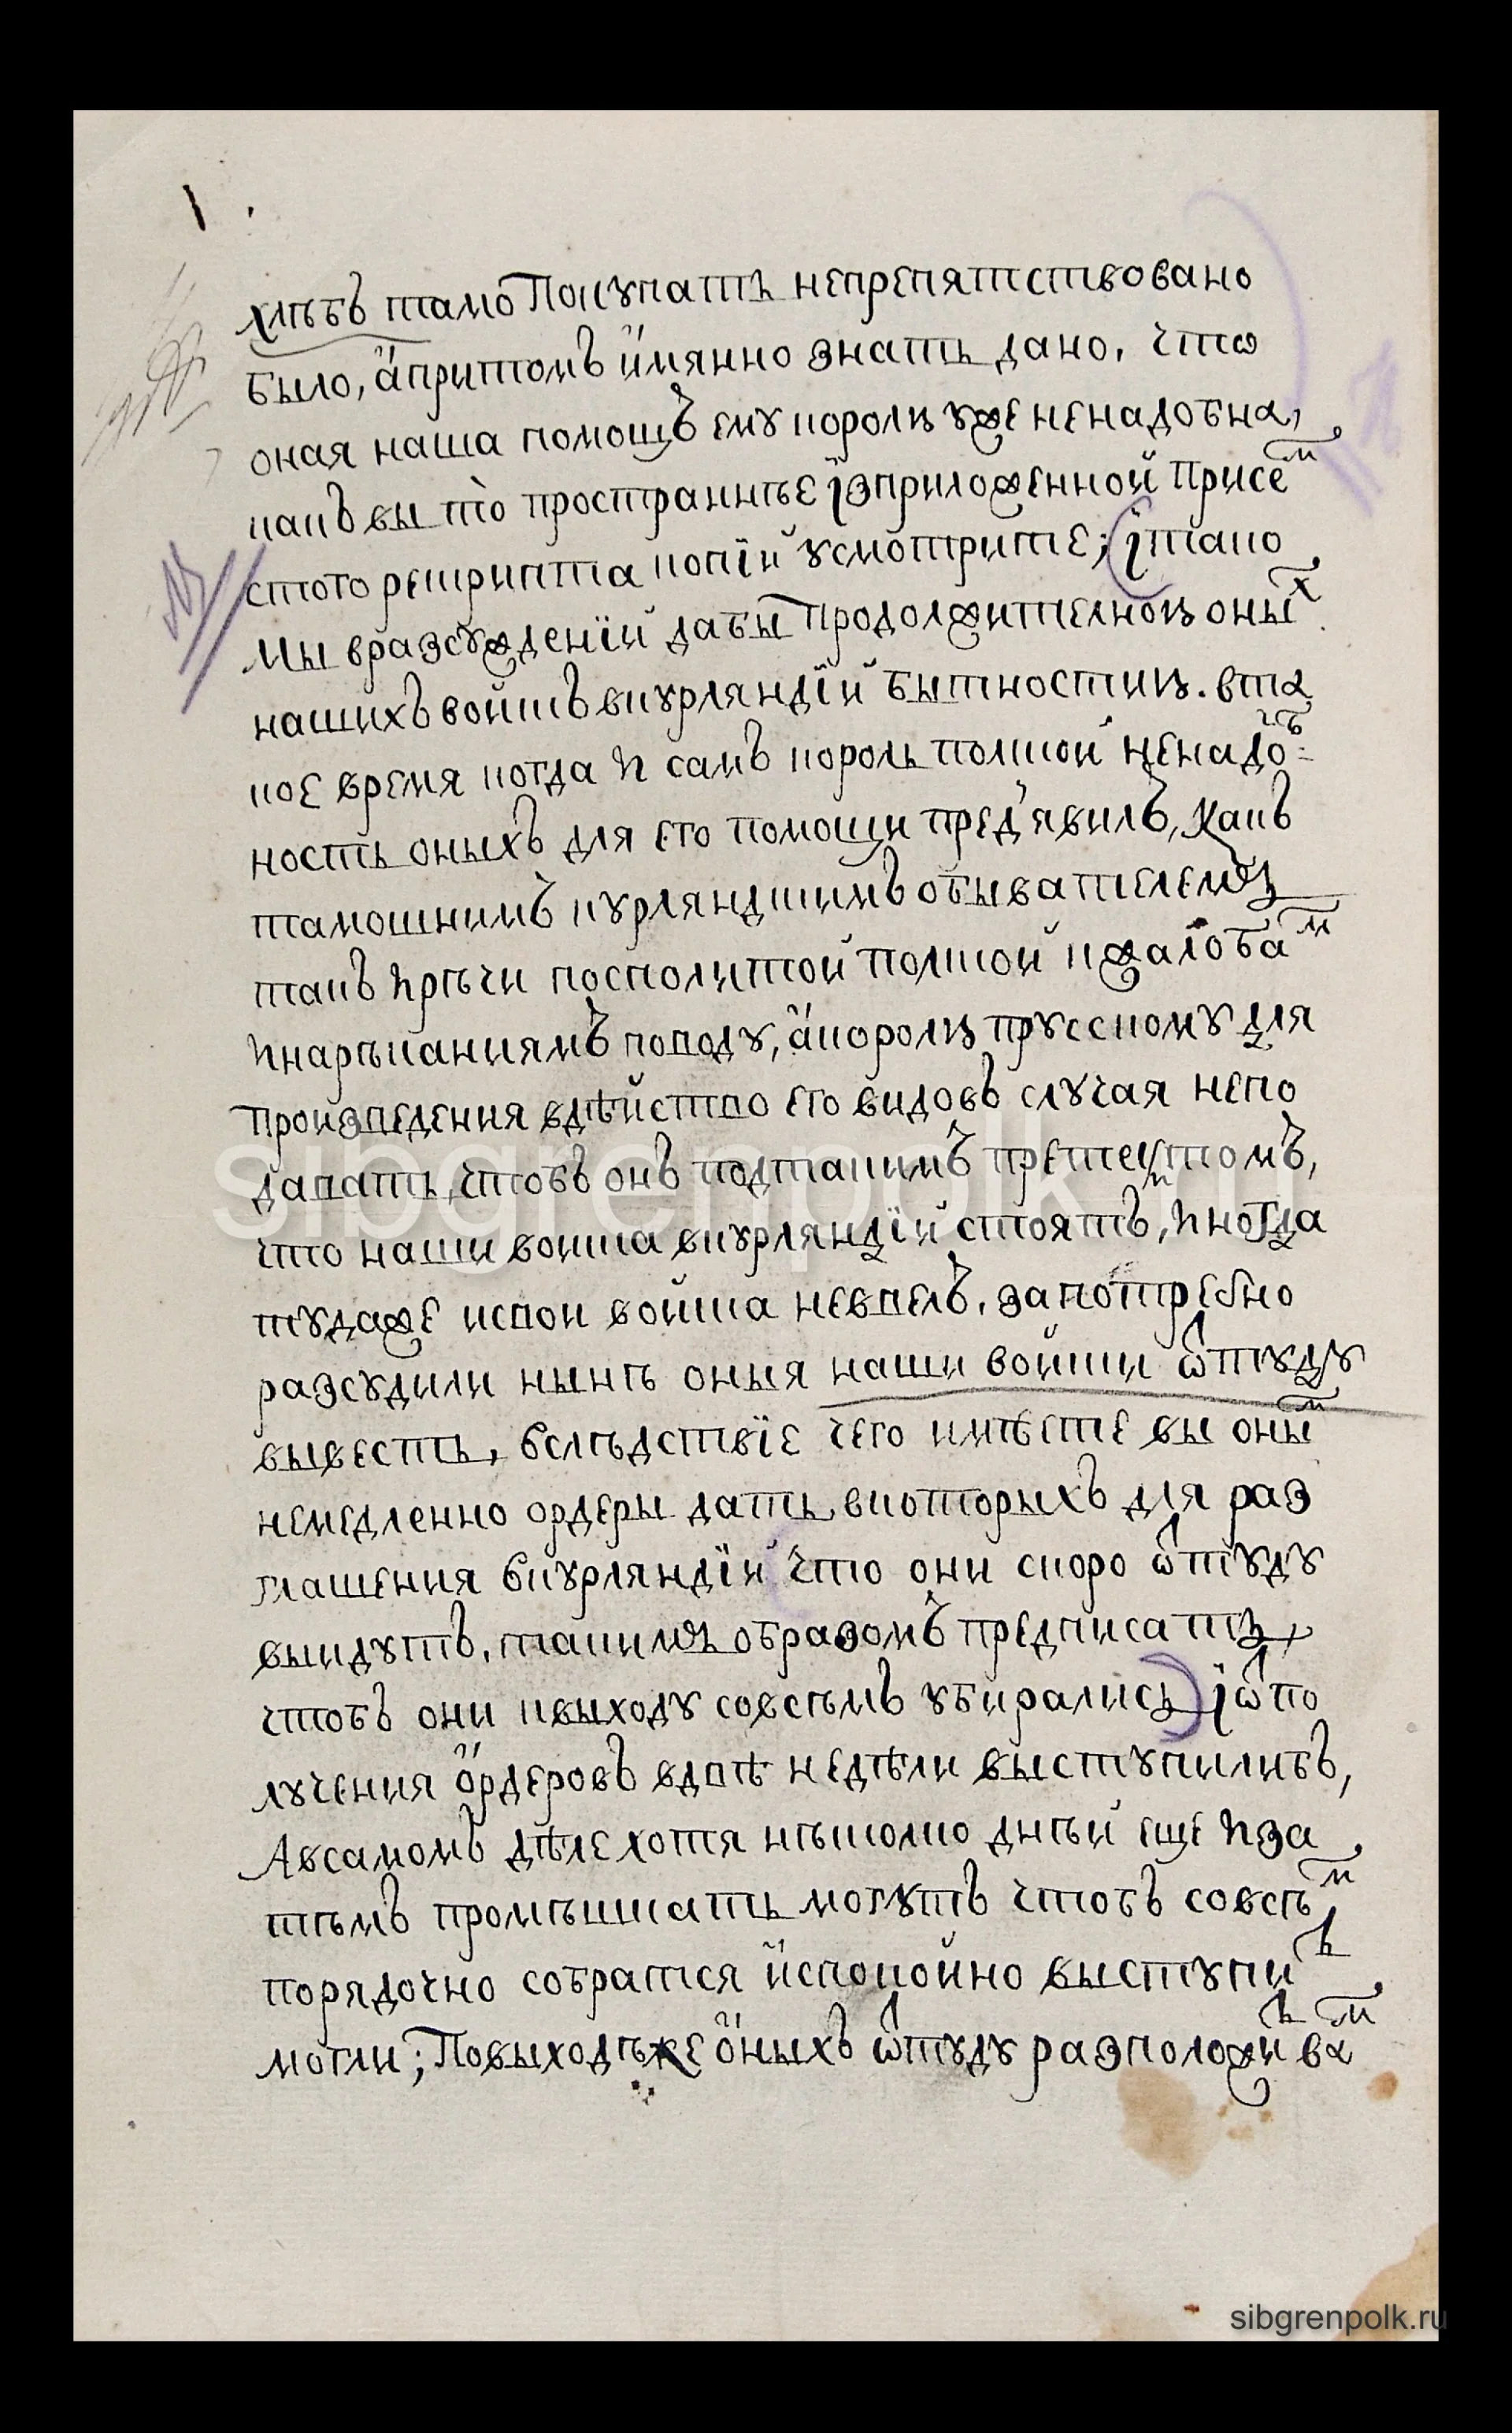 хлѣбъ тамо Покупать непрепятствовано
было, ӓпритомъ ӥмянно знать дано, что
оная наша помощъ ему королю уже ненадобна,
какъ вы то̀ пространнѣе ї́зприложенной присемъ
стого рескрипта копїи усмотрите; ї тако
Мы вразсужденїи дабы продолжителною оных
нашихъ войскъ вкурляндїи бытностию. вта
кое время когда и самъ король полской ненадоб=
ность оныхъ для его помощи пред'явилъ, Какъ
тамошнимъ курляндскимъ обывателемъ
такъ ирѣчи посполитой полской кжалобам
инарѣканиямъ поводу, ӓкоролю прусскому для
произведения вдѣйство его видовъ случая непо
давать, чтобъ онъ подтакимъ претекстомъ,
что наши войска вкурляндїи стоятъ, иногда
тудаже исвои войска неввелъ. запотребно
разсудили нынѣ оныя наши войски ѿтуду
вывесть, вслѣдствїе чего имѣете вы оным
немедленно ордеры дать, вкоторыхъ для раз
глашения вкурляндїи что они скоро ѿтуду
выидутъ. такимъ образомъ предписать,
чтобъ они квыходу совсѣмъ убирались ї ѿпо
лучения ӧрдеровъ вдвѣ недѣли выступилибъ,
Авсамомъ дѣле хотя нѣсколко днѣй еще иза
тѣмъ промѣшкать могутъ чтобъ совсѣм
порядочно собратся ӥспокойно выступить
могли; Повыходѣже ӧныхъ ѿтуду разположить вам
sibgrenpolk.ru
sibgrenpolk.ru